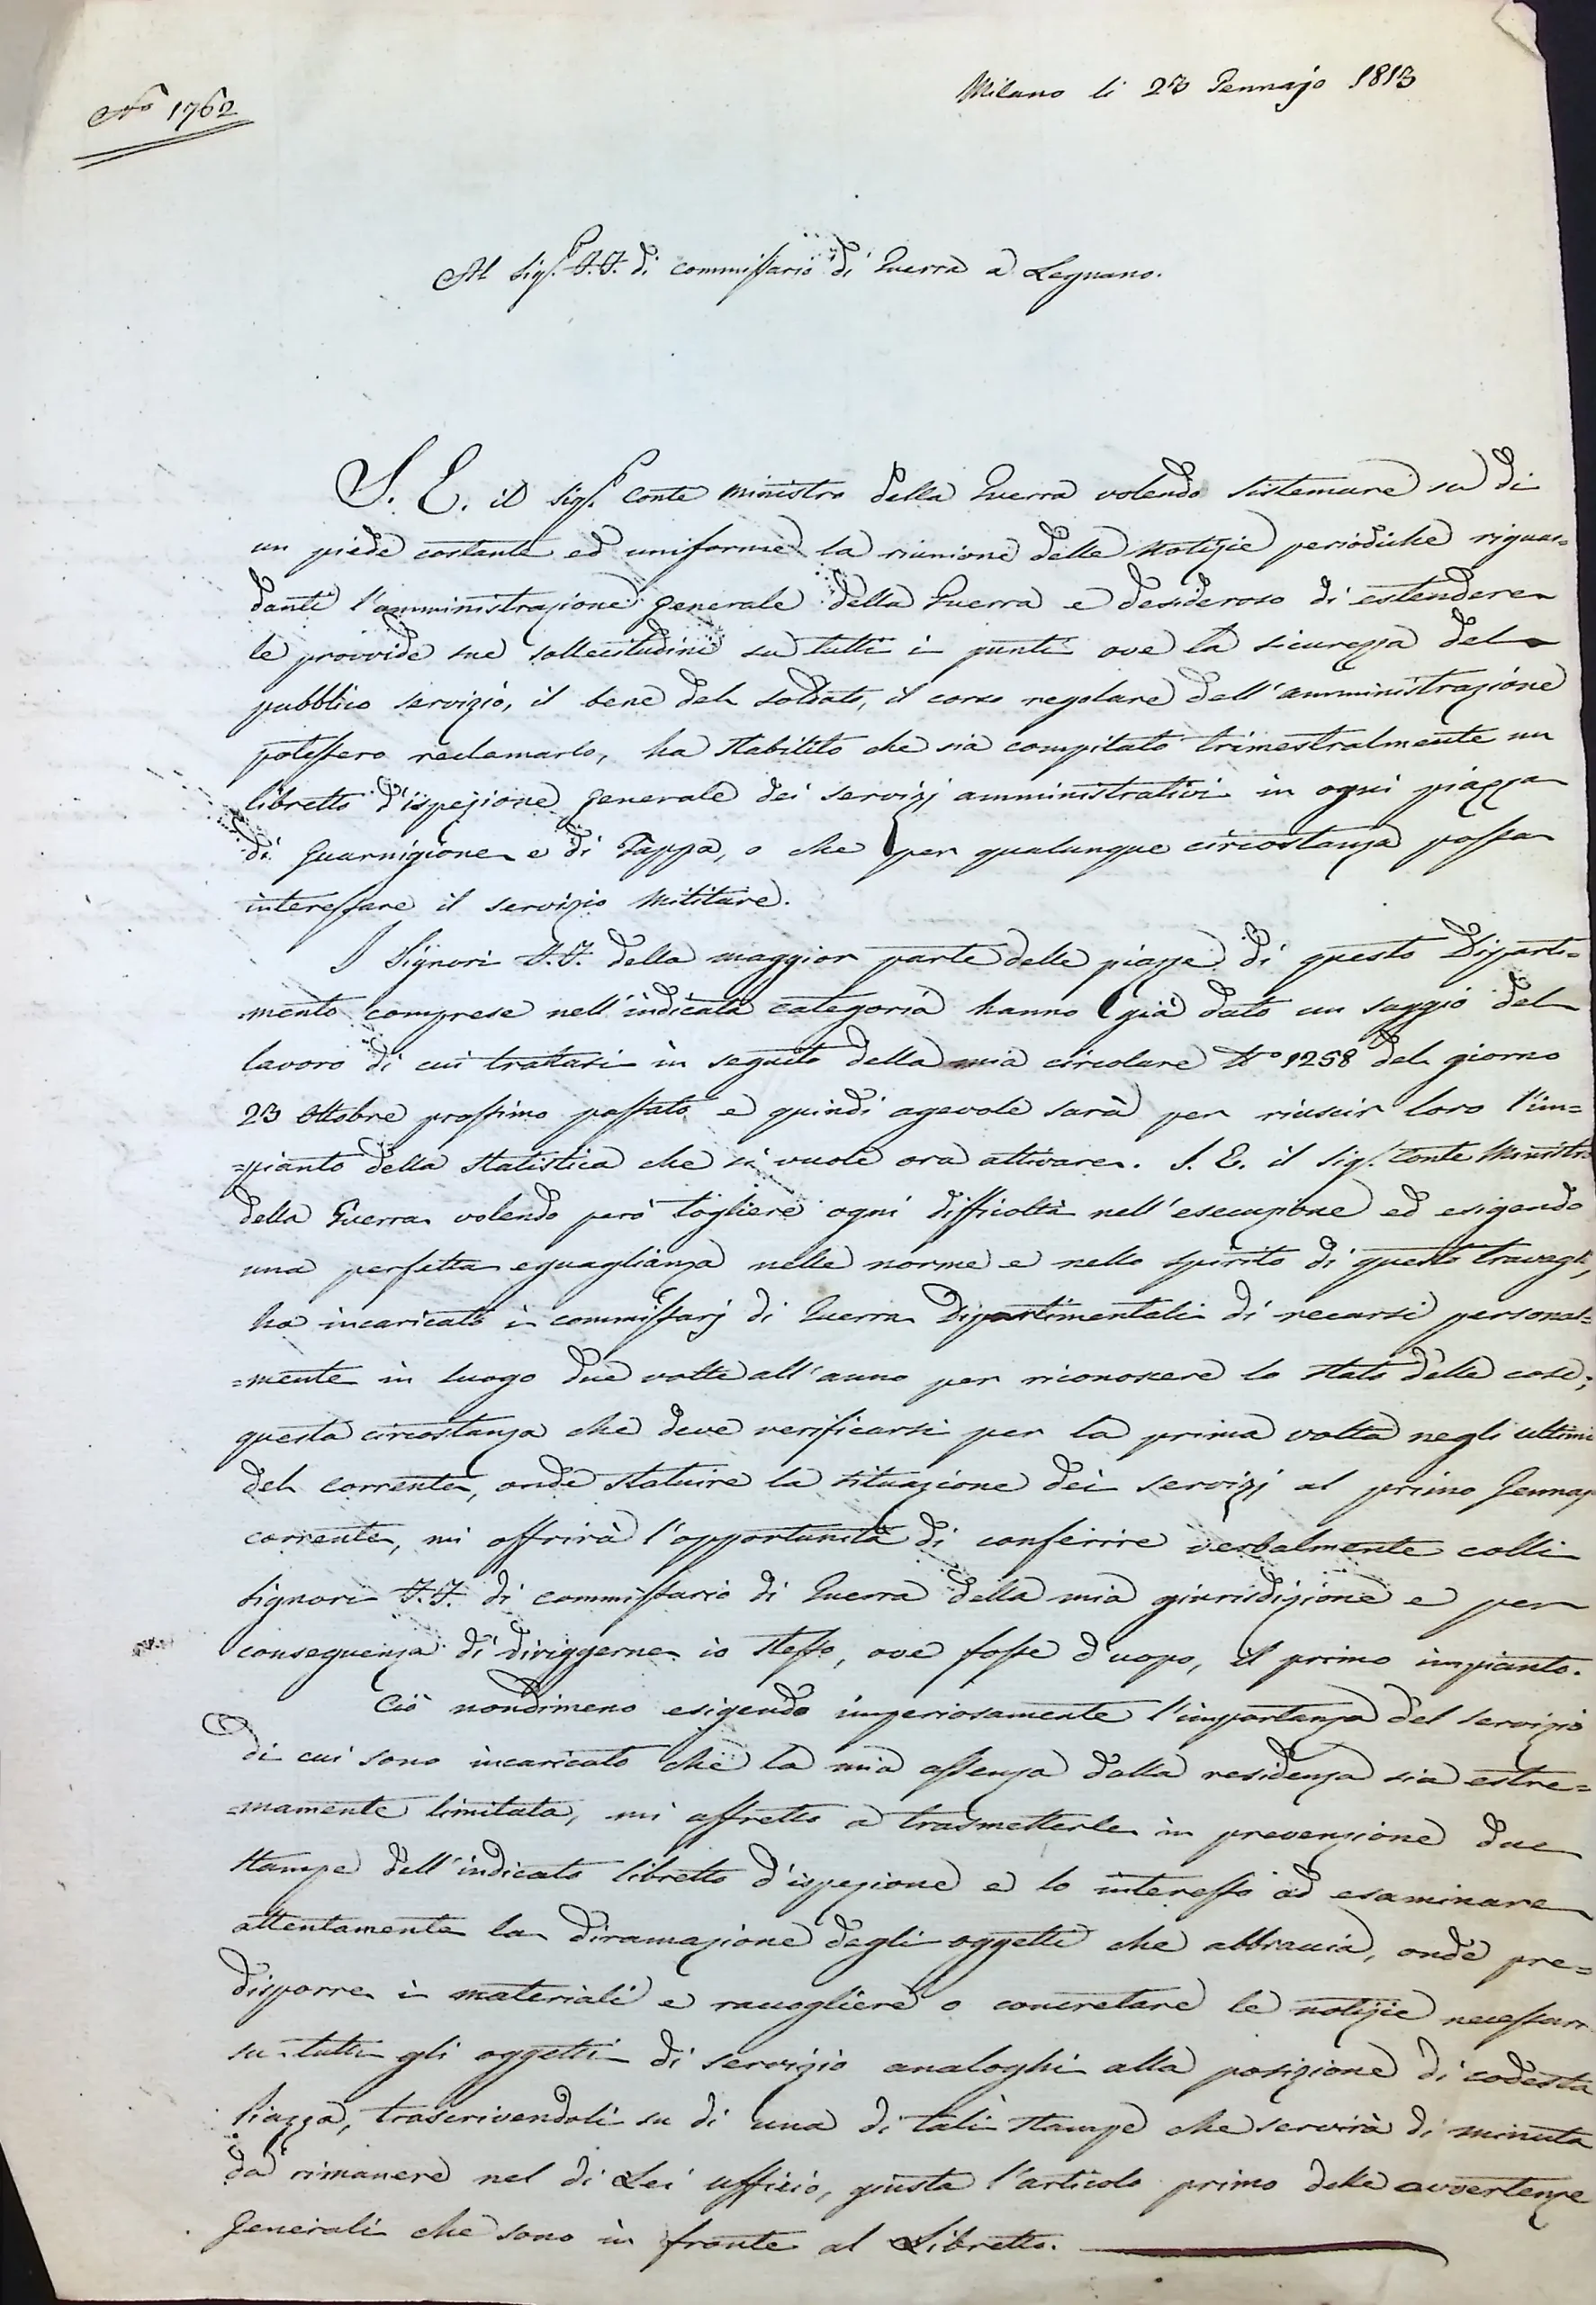 N.º 1762
Milano li 23 Gennajo 1813
Al Sig.r F.F. di Commissario di Guerra a Legnano.
S. E. il Sig.r Conte Ministro della Guerra volendo sistemare su di
un piede costante ed uniforme la riunione delle Notizie periodiche riguar=
danti l'amministrazione generale della Guerra e desideroso di estendere
le provvide sue sollecitudini su tutti i punti ove la sicurezza del
pubblico servizio, il bene del soldato, il corso regolare dell'amministrazione
potessero reclamarlo, ha stabilito che sia compilato trimestralmente un
libretto d'ispezione generale dei servizj amministrativi in ogni piazza
di Guarnigione e di Tappa, o che per qualunque circostanza possa
interessare il servizio Militare.
I Signori F.F. della maggior parte delle piazze di questo Diparti=
mento comprese nell'indicata categoria hanno già dato un saggio del
lavoro di cui trattasi in seguito della mia circolare N.º 1258 del giorno
23 Ottobre prossimo passato e quindi agevole sarà per riuscir loro l'im=
=pianto della statistica che si vuole ora attivare. S. E. il Sig.r Conte Ministro
della Guerra volendo però togliere ogni difficoltà nell'esecuzione ed esigendo
una perfetta eguaglianza nelle norme e nello spirito di questo travaglio,
ha incaricato i Commissarj di Guerra Dipartimentali di recarsi personal=
=mente in luogo due volte all'anno per riconoscere lo stato delle cose;
questa circostanza che deve verificarsi per la prima volta negli ultimi
del corrente, onde statuire la situazione dei servizj al primo Gennajo
corrente, mi offrirà l'opportunità di conferire verbalmente colli
Signori F.F. di Commissario di Guerra della mia giurisdizione e per
conseguenza di diriggerne io stesso, ove fosse d'uopo, il primo impianto.
Ciò nondimeno esigendo imperiosamente l'importanza del servizio
di cui sono incaricato che la mia assenza dalla residenza sia estre=
=mamente limitata, mi affretto a trasmetterle in prevenzione due
stampe dell'indicato libretto d'ispezione e lo interesso ad esaminare
attentamente la diramazione degli oggetti che abbraccia, onde pre=
disporre i materiali e raccogliere o concretare le notizie necessarie
su tutti gli oggetti di servizio analoghi alla posizione di codesta
Piazza, trascrivendoli su di una di tali stampe che servirà di minuta
da rimanere nel di Lei ufficio, giusta l'articolo primo delle avvertenze
Generali che sono in fronte al Libretto.